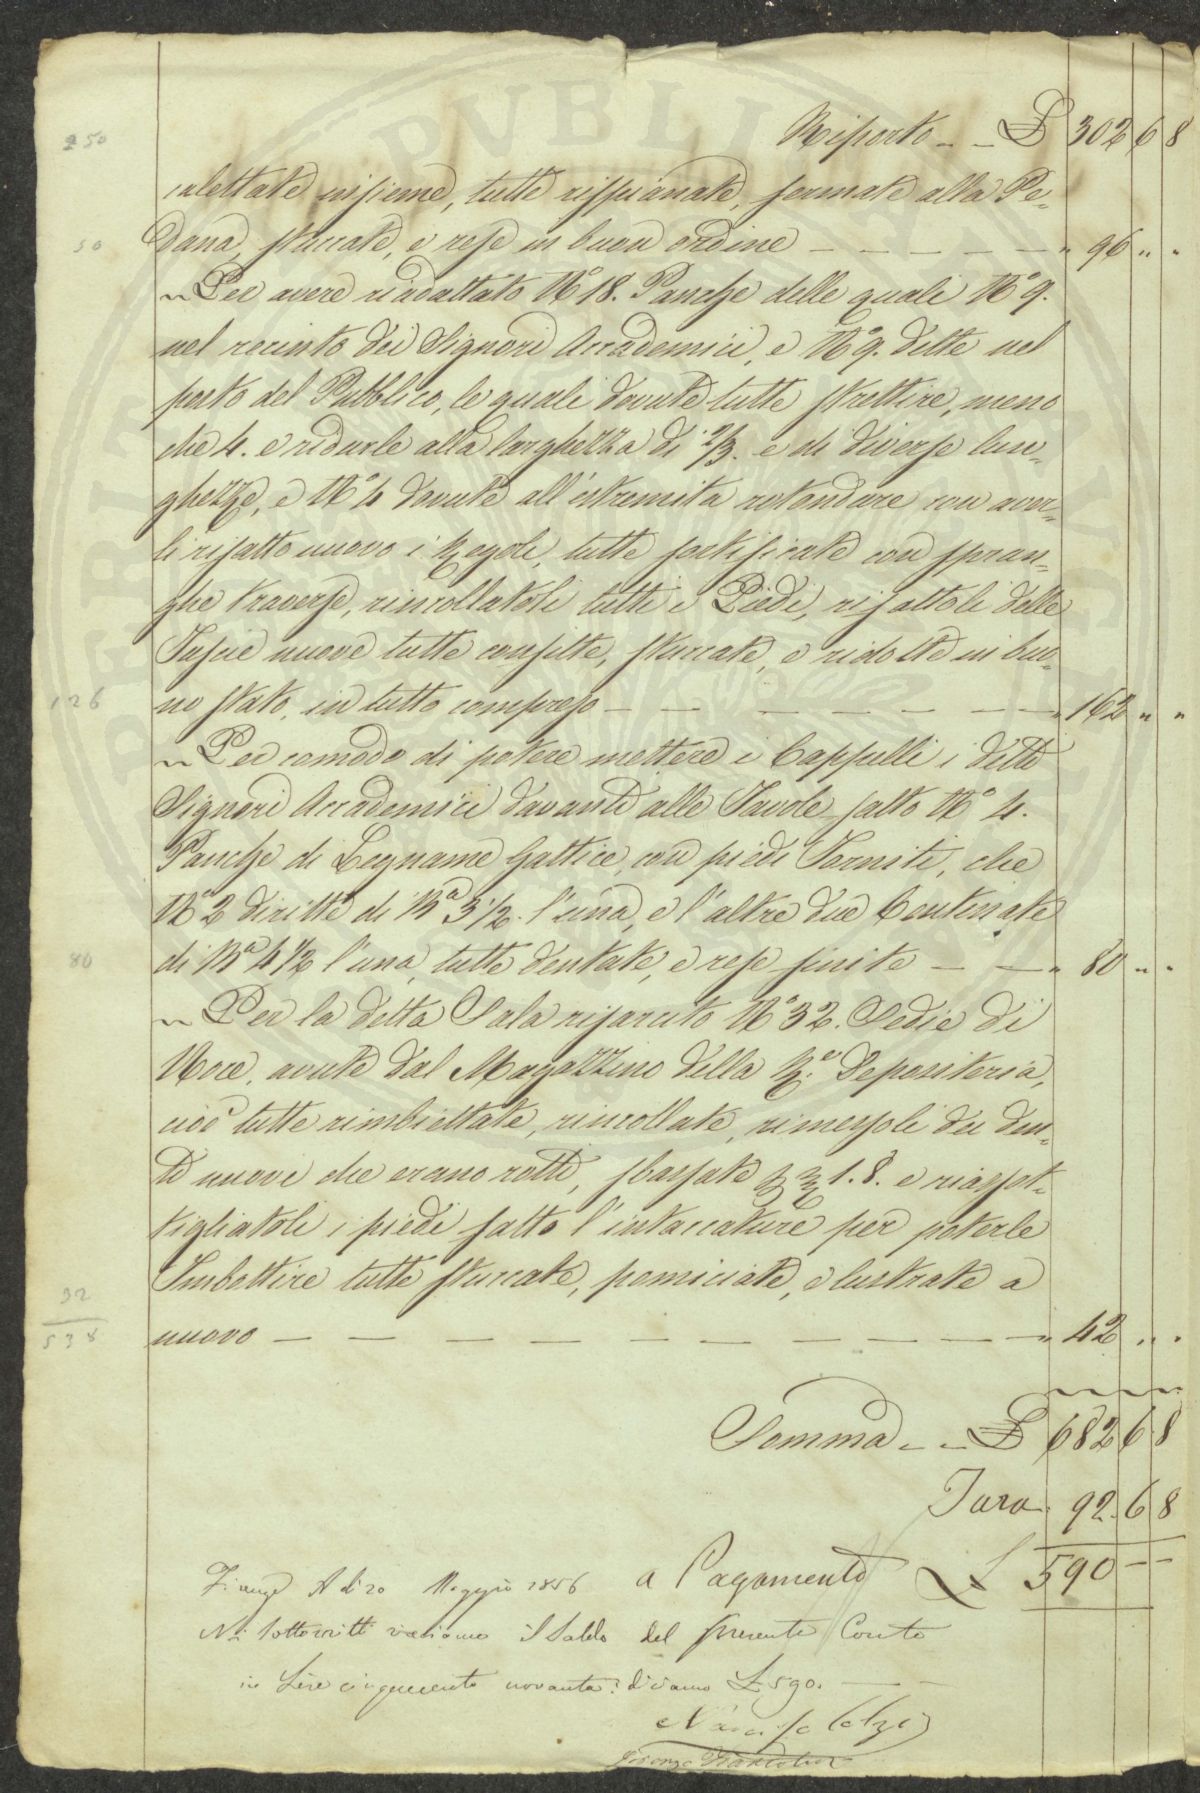 250
Riporto - - £ 302 6 8
calettate insieme, tutte rispianate, fermate alla Pe-
50
dana, stuccate, e rese in buon ordine - - - - - " 96 " "
" Per avere riadattato N.° 18. Panche delle quali N.° 9.
nel recinto dei Signori Accademici, e N.° 9. dette nel
posto del Pubblico, le quali dovute tutte strettire, meno
che 4. e ridurle alla larghezza di 2/3. e di diverse lun-
ghezze, e N.° 4 dovute all'estremità rotondare con aver-
li rifatto nuovo i Regoli, tutte fortificate con spran-
ghe traverse, rincollatoli tutti i Piedi, rifattoli delle
Fascie nuove tutte confitte, stuccate, e ridotte in buo-
126
no stato, in tutto compreso - - - - - - - " 162 " "
" Per comodo di potere mettere i Cappelli i detti
Signori Accademici davanti alle Tavole fatto N.° 4.
Panche di Legname Gattice, con piedi Torniti, che
N.° 2 diritte di B.a 3 1/2. l'una, e l'altre due Centinate
80
di B.a 4 1/2 l'una, tutte dentate, e rese finite - - " 80 " "
" Per la detta Sala risarcito N.° 32. Sedie di
Noce, avute dal Magazzino della R. Depositeria,
cioè tutte rimbiettate, rincollate, rimessoli dei den-
ti nuovi che erano rotti, sbassate 1.8. e riassot-
tigliatoli i piedi fatto l'intaccature per poterle
Imbottire tutte stuccate, pomiciate, e lustrate a
32
nuovo - - - - - - - - - - " 42 " "
538
Somma - - £ 682 6 8
Tara. 92. 6 8
a Pagamento £ 590 - -
Firenze A dì 20 Maggio 1856
Noi sottoscritti riceviamo il Saldo del presente Conto
in Lire cinquecento novanta: diciamo £ 590. - -